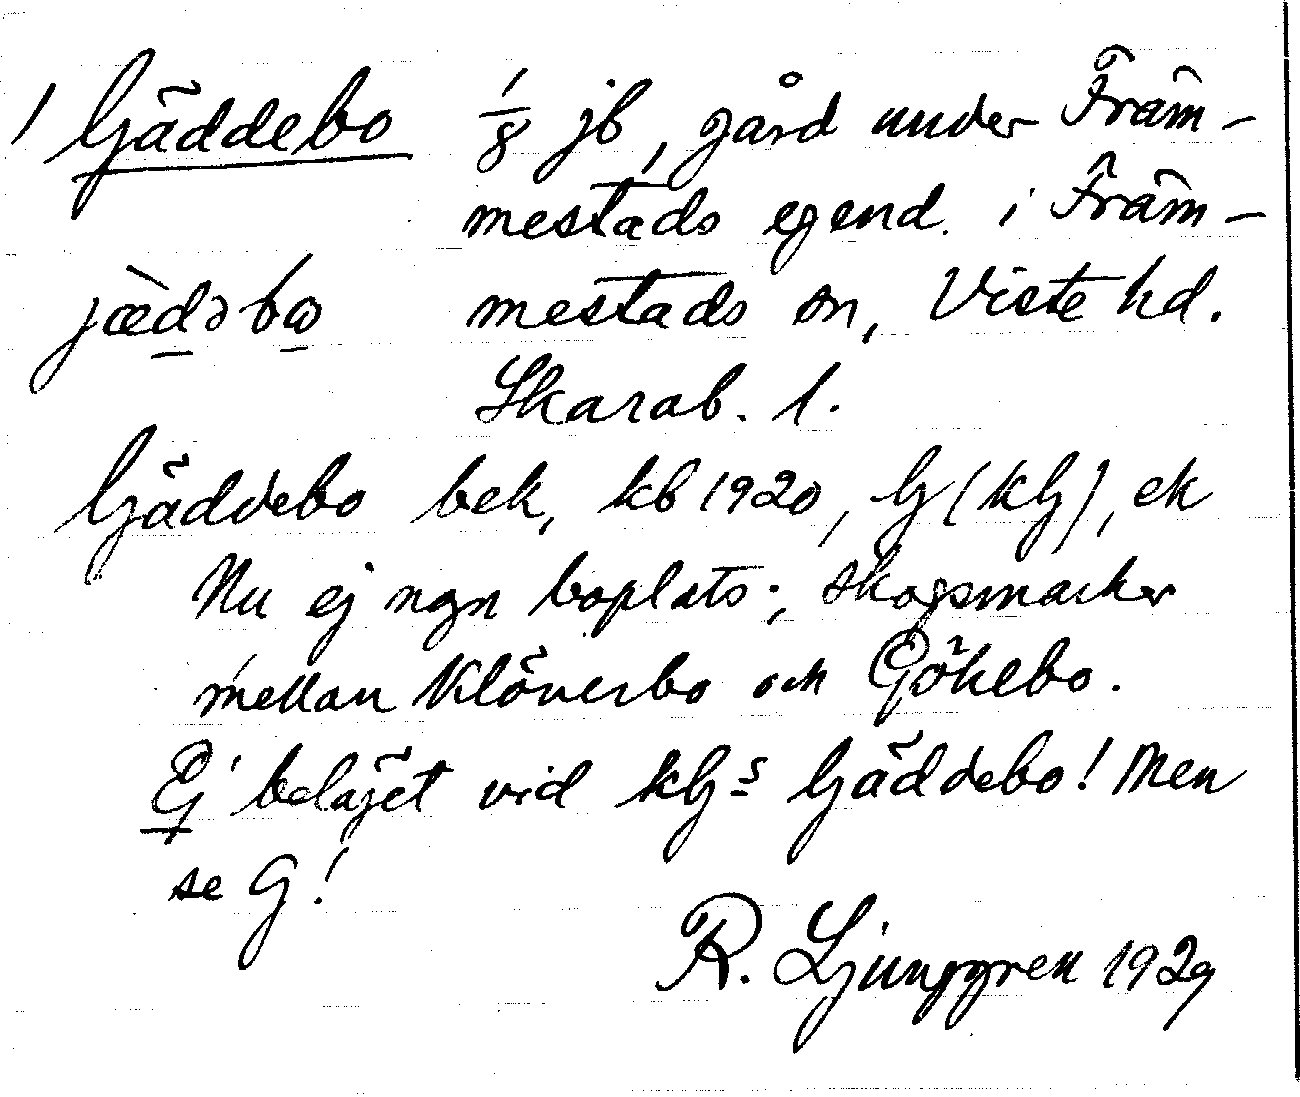 1 Gäddebo 1/8 jb, gård under Främ-
mestads egend. i Främ-
jæ̀dəbo mestads sn, Viste hd.
Skarab. l.
Gäddebo bek, kb 1920, G (kG), ek
Nu ej ngn boplats; skogsmarker
mellan Klöverbo och Gökebo.
Ej beläget vid kG:s Gäddebo! Men
se G!
R. Ljunggren 1929